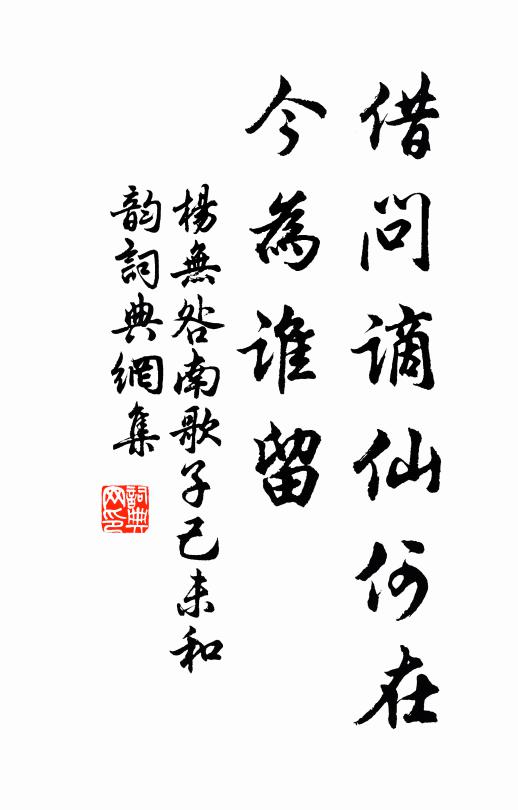 借問謫仙何在
今為誰留
楊無咎南歌子己未和
韵詞典網集
詞典網印